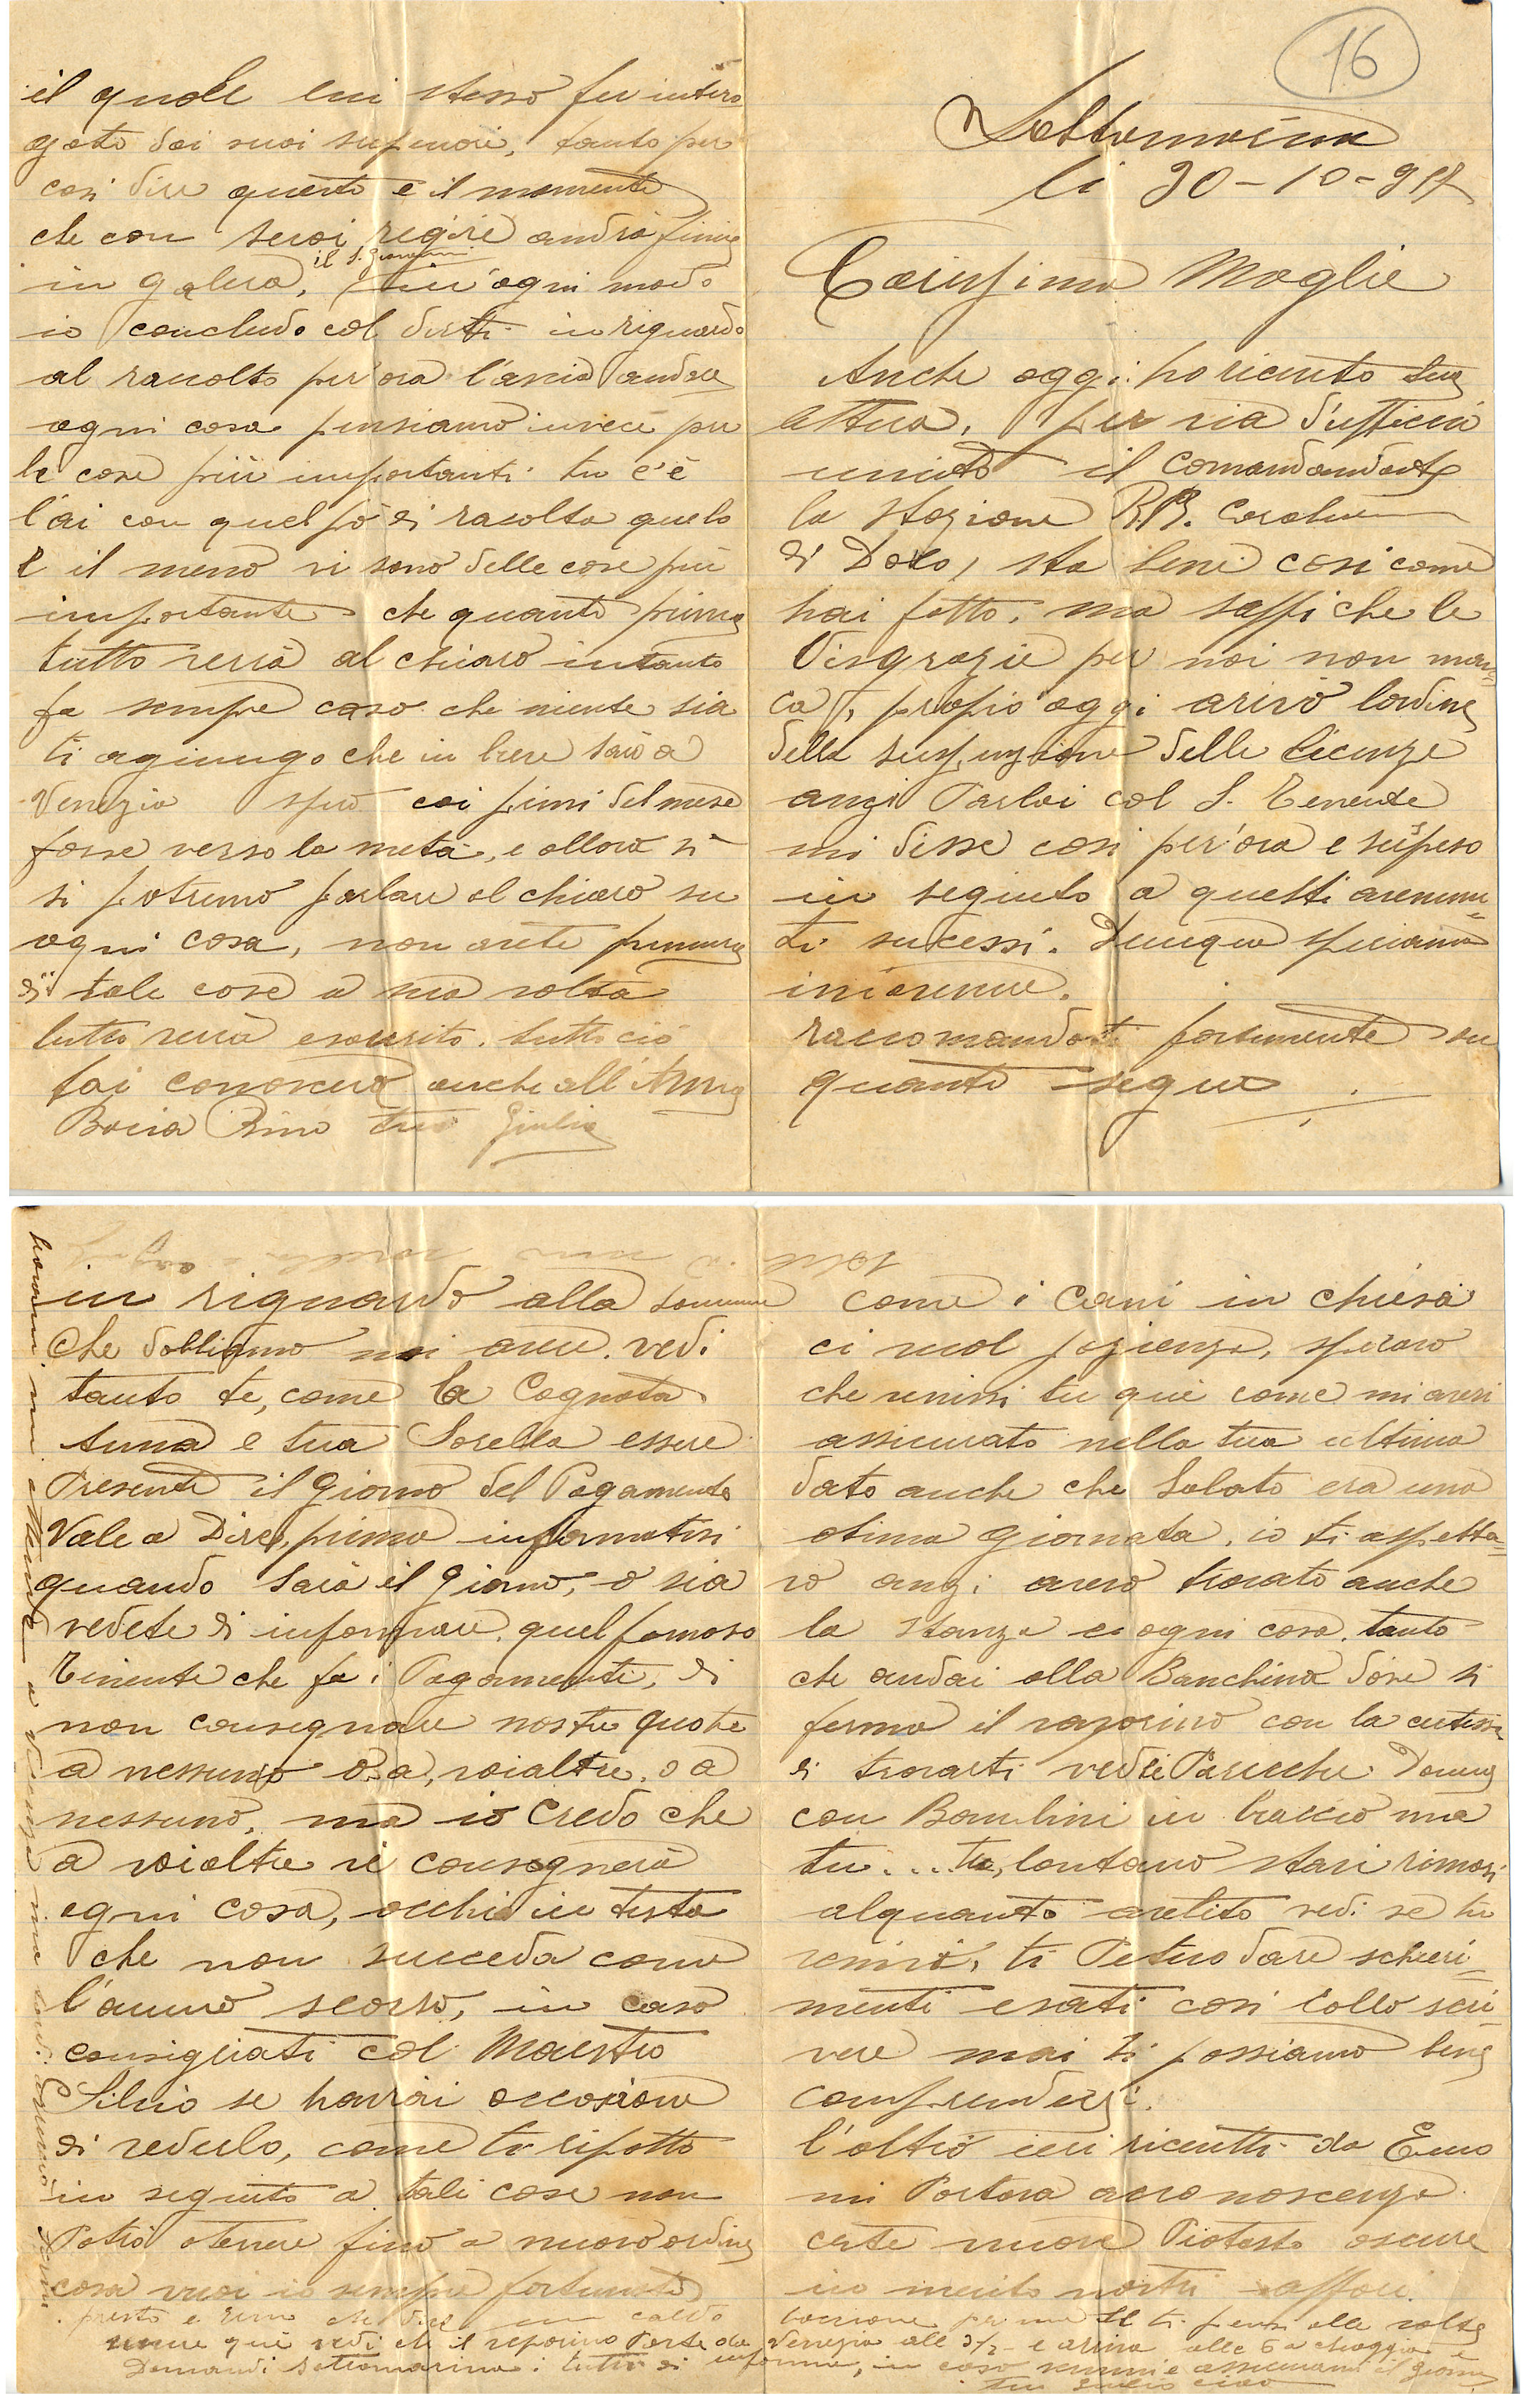 16
Sottomarina
li 30-10-917
Carissima Moglie
Anche oggi ho riceuto tua
lettera, per via d'ufficio
unito il comandandante
la stazione RR. Carabin
di Dolo, sta bene cosi come
hai fatto, ma sappi che le
Disgrazie per noi non man=
ca, propio oggi arivò lordine
della suspenzione delle licenze
anzi Parlai col S. Tenente
mi disse cosi per'ora e suspeso
in seguito a questi avenu=
ti sucessi. Dunque speriamo
in avenire.
raccomandoti fortemente su
quanto segue
in riguardo alla somma
che dobbiamo noi avere. vedi
tanto te, come la Cognata
Anna e tua Sorella essere
Presente il giorno del Pagamento
Vale a Dire, prima informatisi
quando sarà il giorno, o sia
vedete di informare quel famoso
Tenente che fa i Pagamenti, di
non consegnare nostre quote
a nessuno o a, voialtre, o a
nessuno, ma io Credo che
a voialtre vi consegnerà
ogni cosa, occhio in testa
che non succeda come
l'anno scorso, in caso
consigliati col Maestro
Silvio se havrai occasione
di vederlo, come ti ripetto
in seguito a tali cose non
Potrò otenere fino a nuovo ordine
cosa vuoi io sempre fortunato
come i Cani in chiesa
ci vuol pazienza, speravo
che venissi tu qui come mi avevi
assicurato nella tua ultima
dato anche che Sabato era una
otima giornata, io ti aspetta=
vo anzi avevo trovato anche
la stanza e ogni cosa, tanto
che andai alla Banchina dove si
ferma il vaporino con la certessa
di trovarti vedei Parecchie Donne
con Bambini in braccio ma
tu.... tu, lontano stavi rimasi
alquanto avelito vedi se tu
venivi, ti Potevo dare schieri=
menti esati cosi collo scri=
vere mai si possiamo bene
comprendersi.
l'altro ieri ricevetti da Emo
mi Portava a conoscenza
certe nuove Piotosto oscure
in merito nostri affari.
il quale lui stesso fu intero
gato dai suoi superiori, tanto per
cosi dire questo e il momento
che con suoi regiri andrà finire
il S. Giovanni
in galera, in'ogni modo
io concludo col dirti in riguardo
al racolto per'ora l'ascia andare
ogni cosa pensiamo invece per
le cose più importanti tu c'è
l'ai con quel pò di racolta quelo
è il meno vi sono delle cose più
importante che quanto prima
tutto verrà al chiaro intanto
fa sempre caso che niente sia
ti agiungo che in breve sarò a
Venezia spero coi primi del mese
forse verso la metà, e allora si
si potremo parlare al chiaro su
ogni cosa, non avete premura
di tale cose a sua volta
tutto verrà esaurito. tutto ciò
fai conoscere anche all'Anna
Bacia Rino tuo Giulio
presto e Rino che dice un caldo bacione per me se ti pensi alle volte
venire qui vedi che il vaporino Parte da Venezia alle 3½ e ariva alle 6 a chioggia e
Domandi Sottomarina i tutti di informa, in caso venissi e assicurami il giorno
tuo Giulio ciao